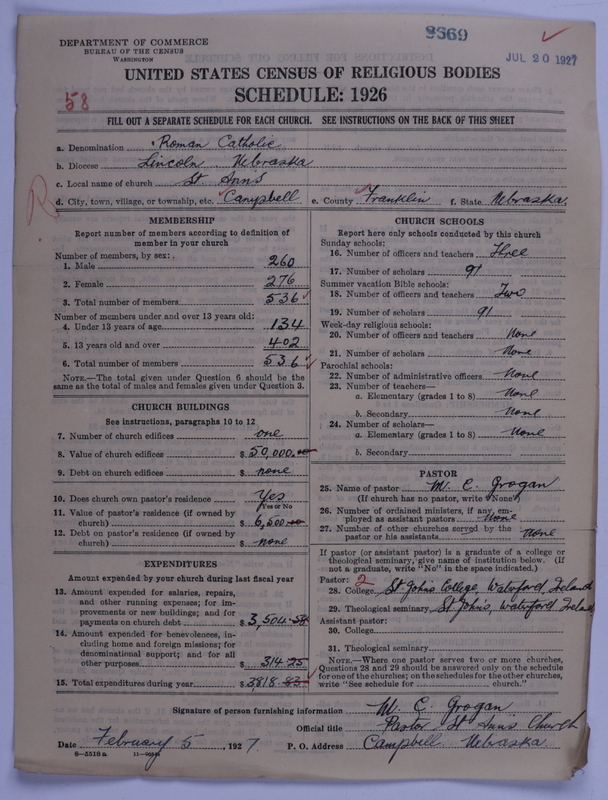 DEPARTMENT OF COMMERCE
BUREAU OF THE CENSUS
WASHINGTON
2569
JUL 20 1927
UNITED STATES CENSUS OF RELIGIOUS BODIES
SCHEDULE: 1926
58
FILL OUT A SEPARATE SCHEDULE FOR EACH CHURCH. SEE INSTRUCTIONS ON THE BACK OF THIS SHEET
a. Denomination Roman Catholic
b. Diocese Lincoln Nebraska
c. Local name of church St. Ann's
d. City, town, village, or township, etc. Campbell e. County Franklin f. State Nebraska
R
MEMBERSHIP
Report number of members according to definition of
member in your church
Number of members, by sex:
1. Male 260
2. Female 276
3. Total number of members 536
Number of members under and over 13 years old:
4. Under 13 years of age 134
5. 13 years old and over 402
6. Total number of members 536
NOTE.—The total given under Question 6 should be the
same as the total of males and females given under Question 3.
CHURCH BUILDINGS
See instructions, paragraphs 10 to 12
7. Number of church edifices one
8. Value of church edifices $ 50,000.00
9. Debt on church edifices $ none
10. Does church own pastor's residence Yes
Yes or No
11. Value of pastor's residence (if owned by
church) $ 6,500.00
12. Debt on pastor's residence (if owned by
church) $ none
EXPENDITURES
Amount expended by your church during last fiscal year
13. Amount expended for salaries, repairs,
and other running expenses; for im-
provements or new buildings; and for
payments on church debt $ 3,504.58
14. Amount expended for benevolences, in-
cluding home and foreign missions; for
denominational support; and for all
other purposes $ 314.25
15. Total expenditures during year $ 3818.83
CHURCH SCHOOLS
Report here only schools conducted by this church
Sunday schools:
16. Number of officers and teachers Three
17. Number of scholars 91
Summer vacation Bible schools:
18. Number of officers and teachers Two
19. Number of scholars 91
Week-day religious schools:
20. Number of officers and teachers None
21. Number of scholars None
Parochial schools:
22. Number of administrative officers None
23. Number of teachers—
a. Elementary (grades 1 to 8) None
b. Secondary None
24. Number of scholars—
a. Elementary (grades 1 to 8) None
b. Secondary
PASTOR
25. Name of pastor M. C. Grogan
(If church has no pastor, write "None")
26. Number of ordained ministers, if any, em-
ployed as assistant pastors None
27. Number of other churches served by the
pastor or his assistants None
If pastor (or assistant pastor) is a graduate of a college or
theological seminary, give name of institution below. (If
not a graduate, write "No" in the space indicated.)
Pastor: 2
28. College St. Johns College, Waterford, Ireland
29. Theological seminary St. John's, Waterford Ireland
Assistant pastor:
30. College
31. Theological seminary
NOTE.—Where one pastor serves two or more churches,
Questions 28 and 29 should be answered only on the schedule
for one of the churches; on the schedules for the other churches,
write "See schedule for church."
Signature of person furnishing information M. C. Grogan
Official title Pastor St Anns Church
Date February 5, 1927. P. O. Address Campbell Nebraska
8—5518a